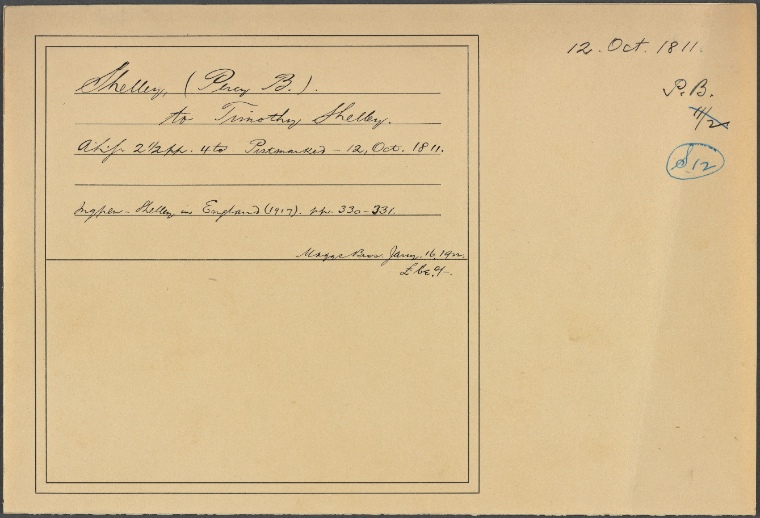 12. Oct. 1811.
P.B.
S. 12
Shelley, (Percy B.).
to Timothy Shelley.
2½ pp. 4to Postmarked - 12, Oct. 1811.
Ingpen - Shelley in England (1917). pp. 330-331.
Maggs Bros. Jany. 16, 
£